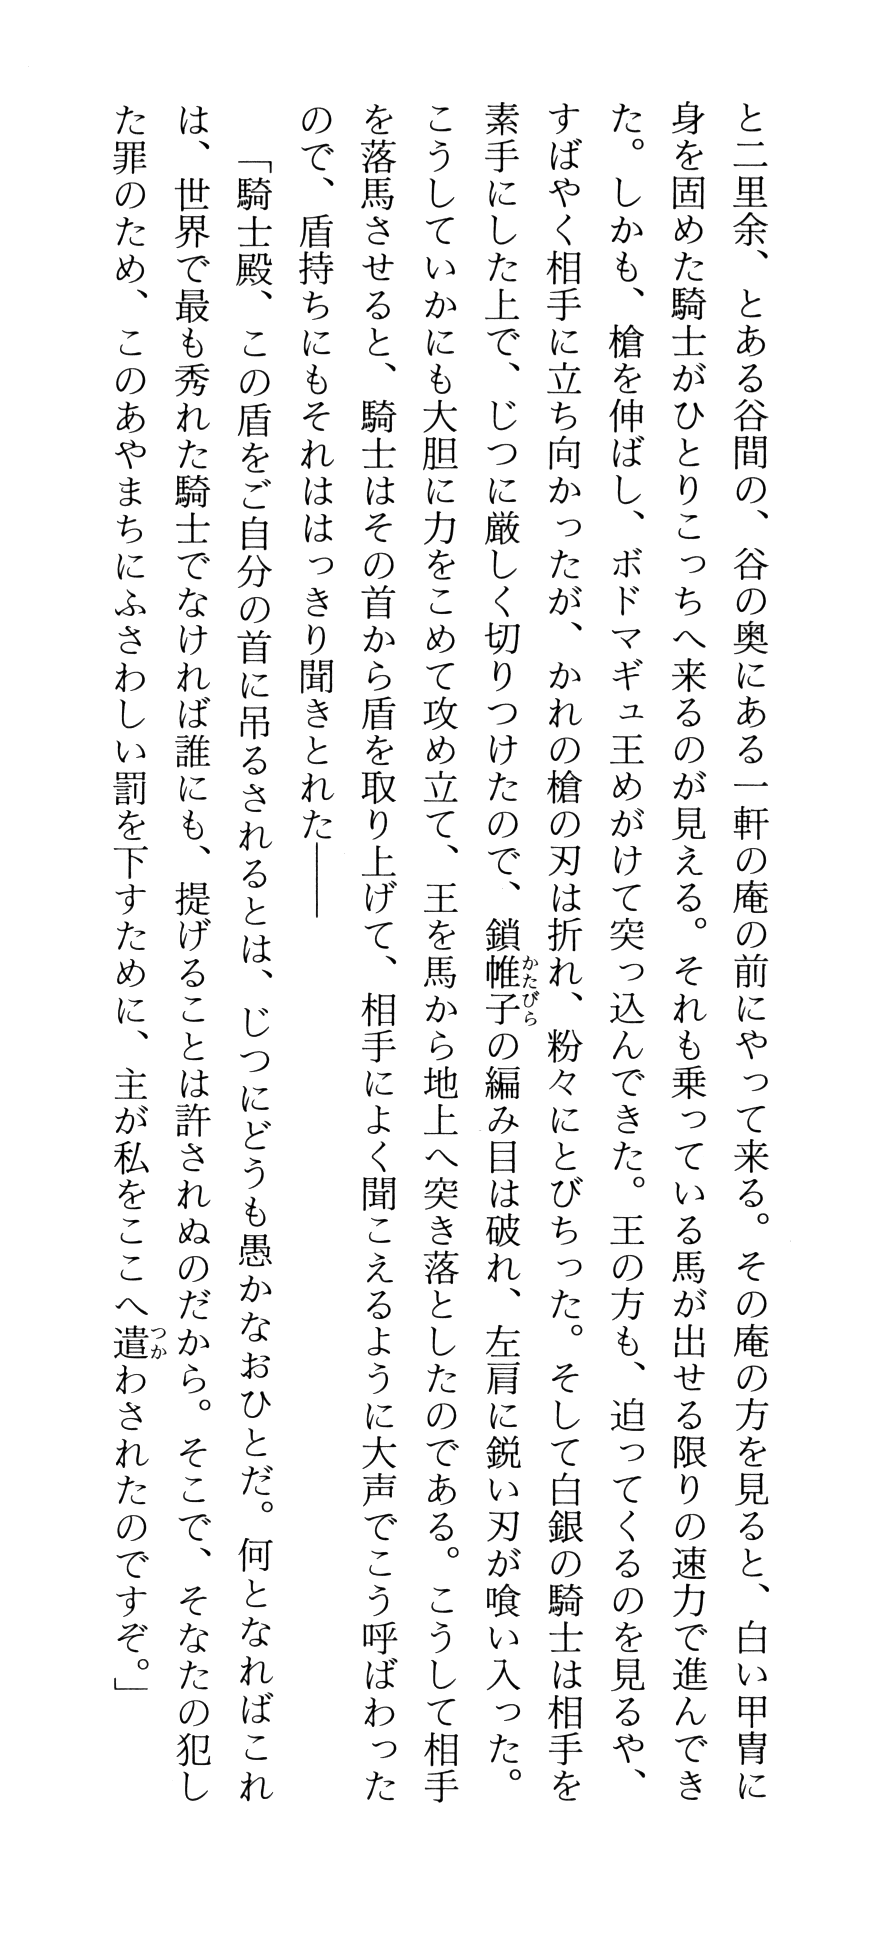 と二里余、とある谷間の、谷の奥にある一軒の庵の前にやって来る。その庵の方を見ると、白い甲冑に
身を固めた騎士がひとりこっちへ来るのが見える。それも乗っている馬が出せる限りの速力で進んでき
た。しかも、槍を伸ばし、ボドマギュ王めがけて突っ込んできた。王の方も、迫ってくるのを見るや、
すばやく相手に立ち向かったが、かれの槍の刃は折れ、粉々にとびちった。そして白銀の騎士は相手を
素手にした上で、じつに厳しく切りつけたので、鎖帷子の編み目は破れ、左肩に鋭い刃が喰い入った。
かたびら
こうしていかにも大胆に力をこめて攻め立て、王を馬から地上へ突き落としたのである。こうして相手
を落馬させると、騎士はその首から盾を取り上げて、相手によく聞こえるように大声でこう呼ばわった
ので、盾持ちにもそれははっきり聞きとれた――
「騎士殿、この盾をご自分の首に吊るされるとは、じつにどうも愚かなおひとだ。何となればこれ
は、世界で最も秀れた騎士でなければ誰にも、提げることは許されぬのだから。そこで、そなたの犯し
た罪のため、このあやまちにふさわしい罰を下すために、主が私をここへ遣わされたのですぞ。」
つか